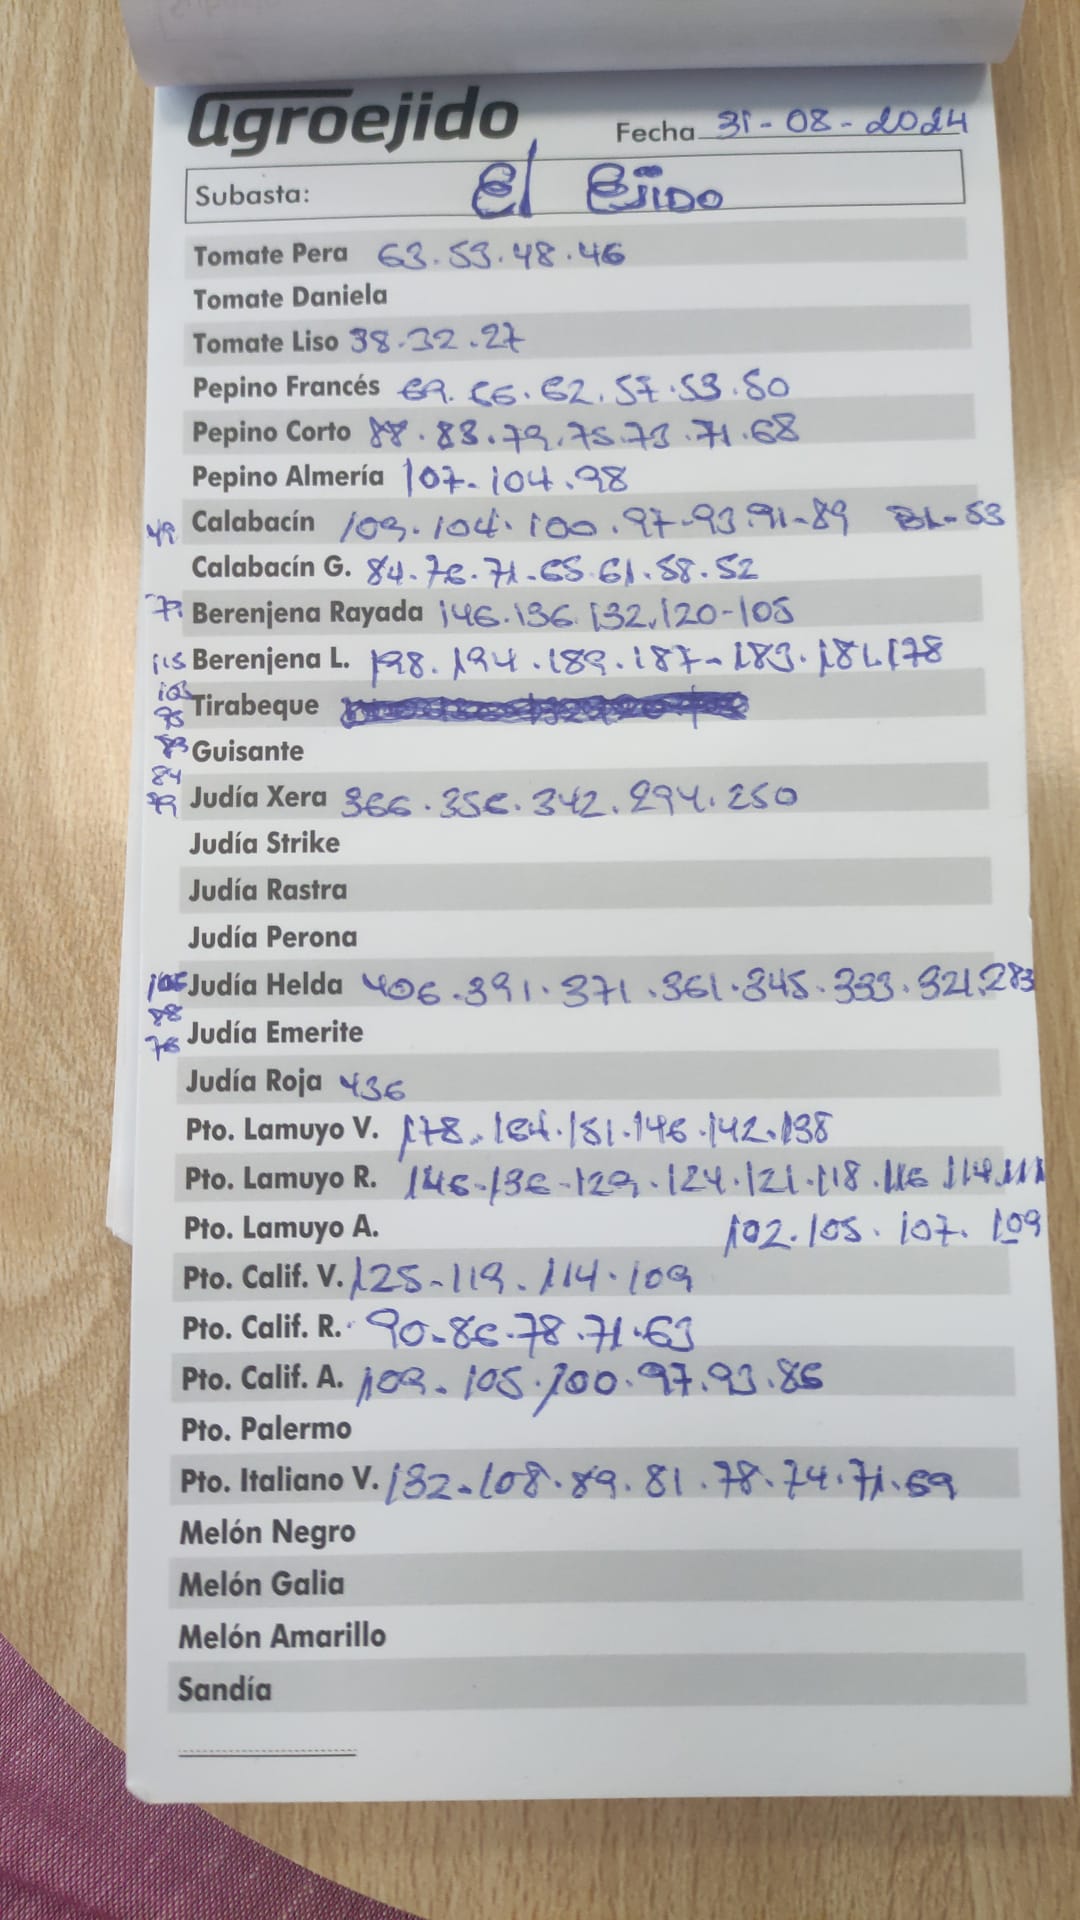 agroejido
Fecha 31-08-2024
Subasta: El Ejido
Tomate Pera 63.53.48.46
Tomate Daniela
Tomate Liso 38.32.27
Pepino Francés 69.66.62.57.53.50
Pepino Corto 88.83.79.75.73.71.68
Pepino Almería 107.104.98
49 Calabacín 109.104.100.97-93.91-89 BL-53
Calabacín G. 84.76.71-65.61.58.52
79 Berenjena Rayada 146.136.132.120-105
115 Berenjena L. 198.194.189.187-183.181.178
103
95 Tirabeque
Guisante
84
79 Judía Xera 366.356.342.294.250
Judía Strike
Judía Rastra
Judía Perona
106 Judía Helda 406.391.371.361.345.333.321.283
88
76 Judía Emerite
Judía Roja 436
Pto. Lamuyo V. 178.164.151.146.142.138
Pto. Lamuyo R. 146-136-129.124.121.118.116 114.111
Pto. Lamuyo A. 102.105.107.109
Pto. Calif. V. 125-119.114.109
Pto. Calif. R. 90-86-78.71.63
Pto. Calif. A. 109.105.100.97.93.86
Pto. Palermo
Pto. Italiano V. 132-108.89.81.78.74.71.69
Melón Negro
Melón Galia
Melón Amarillo
Sandía